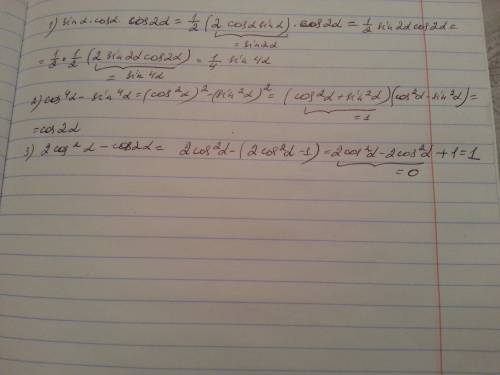 1) sinα·cosα·cos2α = 1/2 (2 cosαsinα)·cos2α = 1/2 sin2αcos2α =
= sin2α
= 1/2 · 1/2 (2 sin2αcos2α) = 1/4 sin 4α
= sin 4α
2) cos⁴α - sin⁴α = (cos²α)² - (sin²α)² = (cos²α + sin²α)(cos²α - sin²α) =
= 1
= cos2α
3) 2cos²α - cos2α = 2cos²α - (2cos²α - 1) = 2cos²α - 2cos²α + 1 = 1
= 0